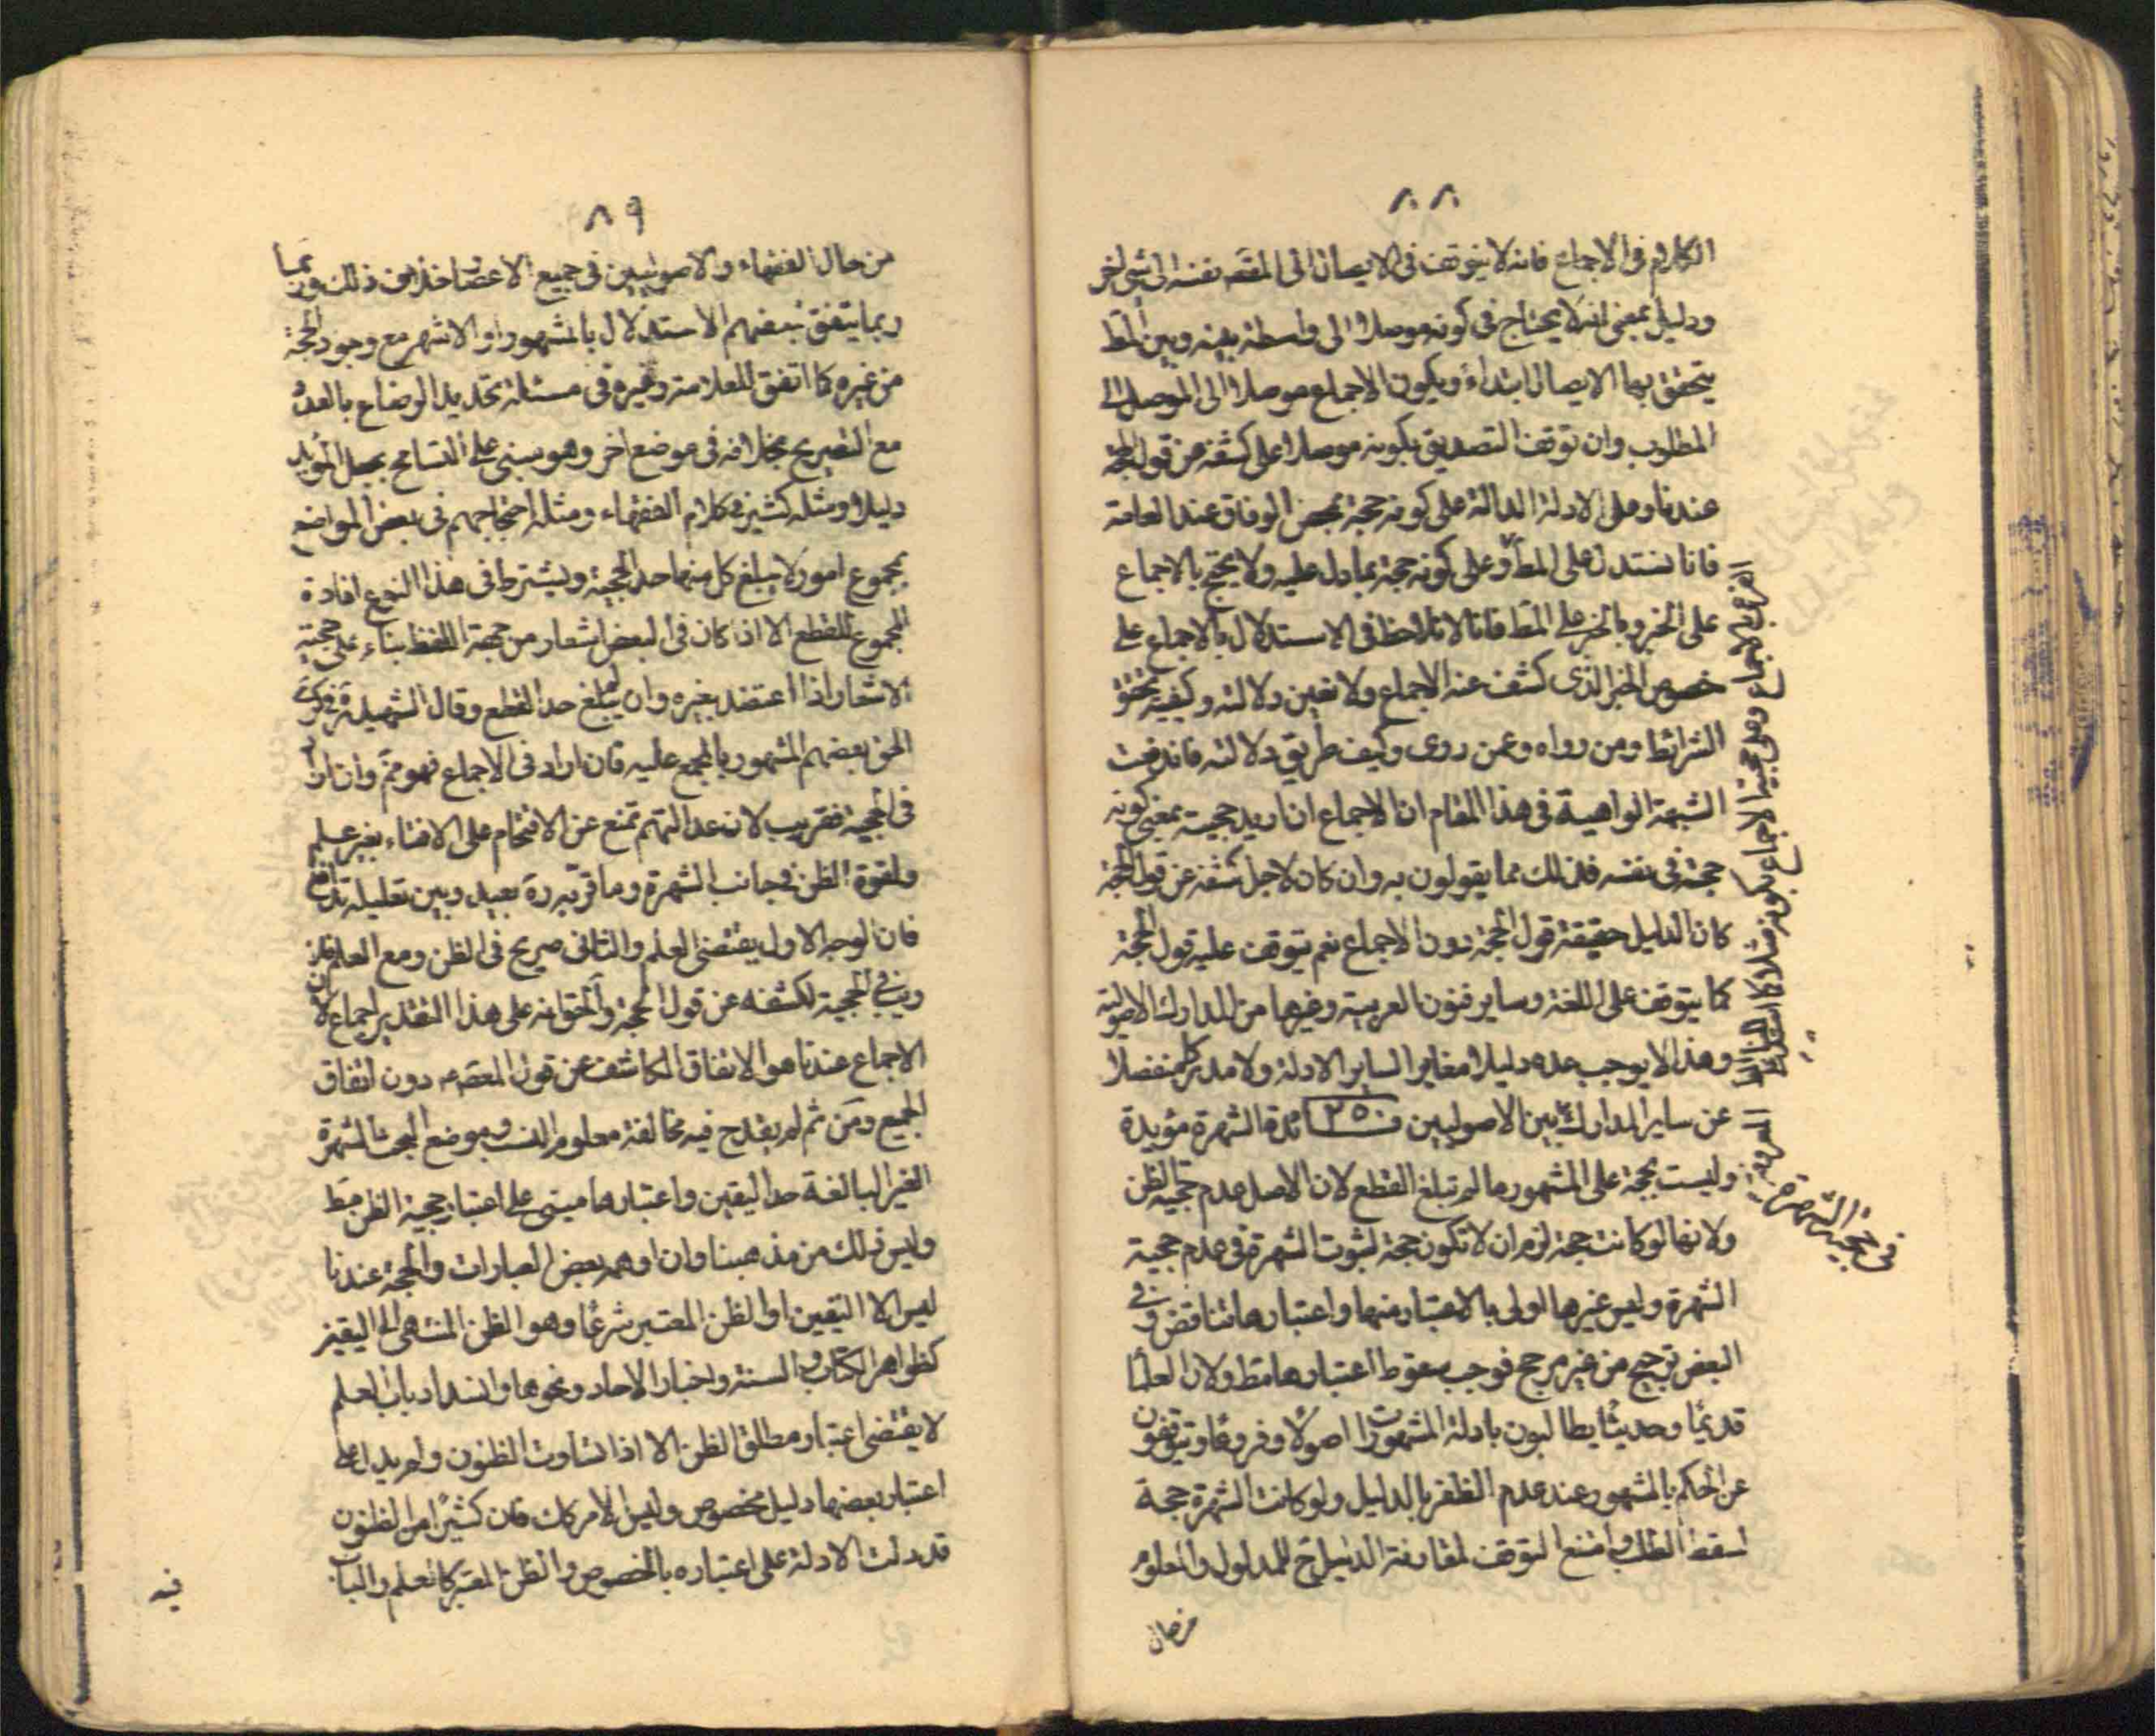 ٨٨
الكلام فى الاجماع فانه لا يتوقف فى الايصال الى المقصد نفسه الى شئ اخر
ودليل بمعنى انه لا يحتاج فى كونه موصلا الى واسطة بينه وبين المط
يتحقق بها الايصال ابتداء ويكون الاجماع موصلا الى الموصل الى
المطلوب وان توقف التصديق بكونه موصلا على كشفه من قول الحجة
عندنا وعلى الادلة الدالة على كونه حجة بمحض الوفاق عند العامة
فانا نستدل على المط وعلى كونه حجة بما دل عليه ولا نحتج بالاجماع
على الخبر وبالخبر على المط فانا لا نلاحظ فى الاستدلال بالاجماع على
خصوص الخبر الذى كشف عنه الاجماع ولا نعين دلالته وكيفية تحقق
الشرائط ومن رواه وعمن روى وكيف طريق دلالته فاندفعت
الشبهة الواهية فى هذا المقام ان الاجماع ان اريد حجيته بمعنى كونه
حجة فى نفسه فذلك مما يقولون به وان كان لاجل كشفه عن قول الحجة
كان الدليل حقيقة قول الحجة دون الاجماع نعم يتوقف عليه قول الحجة
كما يتوقف على اللغة وساير فنون العربية وغيرها من المدارك الاصولية
وهذا لا يوجب عده دليلا مغايرا لساير الادلة ولا مدركا منفصلا
عن ساير المدارك بين الاصوليين فـ ٢٥ ـائدة الشهرة مؤيدة
وليست بحجة على المشهور ما لم تبلغ القطع لان الاصل عدم حجية الظن
ولانها لو كانت حجة لزم ان لا تكون حجة لثبوت الشهرة فى عدم حجية
الشهرة وليس غيرها اولى بالاعتبار منها واعتبارها تناقض وفى
البعض ترجيح من غير مرجح فوجب سقوط اعتبارها مط ولان العلماء
قديما وحديثا يطالبون بادلة المشهورات اصولا وفروعا ويتوقفون
عن الحكم بالمشهور عند عدم الظفر بالدليل ولو كانت الشهرة حجة
لسقط الطلب وامتنع التوقف لمقارنة الدليل ح للمدلول والمعلوم
من حال
فى حجية الشهرة
٨٩
من حال الفقهاء والاصوليين فى جميع الاعصار خلاف ذلك وربما
ربما يتفق لبعضهم الاستدلال بالمشهور او الاشهر مع وجود الحجة
من غيره كما اتفق للعلامة وغيره فى مسئلة تحديد الرضاع بالعدد
مع التصريح بخلافه فى موضع اخر وهو مبنى على التسامح بجعل المؤيد
دليلا ومثله كثير فى كلام الفقهاء ومثله احتجاجهم فى بعض المواضع
بمجموع امور لا يبلغ كل منها حد الحجية ويشترط فى هذا النوع افادة
المجموع للقطع الا اذا كان فى البعض اشعار من جهة اللفظ بناء على حجية
الاشعار اذا اعتضد بغيره وان لم يبلغ حد القطع وقال الشهيد ره فى كرى
الحق بعضهم المشهور بالمجمع عليه فان اراد فى الاجماع فهو مم وان اراد
فى الحجية فقريب لان عدالتهم تمنع عن الاقتحام على الافتاء بغير علم
ولقوة الظن فى جانب الشهرة وما قربه ره بعيد وبين تعليليه تدافع
فان الوجه الاول يقتضى العلم والثانى صريح فى الظن ومع العلم فلا
ريب فى الحجية لكشفه عن قول الحجة والحق انه على هذا التقدير اجماع لان
الاجماع عندنا هو الاتفاق الكاشف عن قول المعصوم دون اتفاق
الجميع ومن ثم لم يقدح فيه مخالفة معلوم النسب وموضع البحث الشهرة
الغير البالغة حد اليقين واعتبارها مبنى على اعتبار حجية الظن مط
وليس ذلك من مذهبنا وان اوهمه بعض العبارات والحجة عندنا
ليس الا اليقين او الظن المعتبر شرعا وهو الظن المنتهى الى اليقين
كظواهر الكتاب والسنة واخبار الاحاد ونحوها وانسداد باب العلم
لا يقتضى اعتبار مطلق الظن الا اذا تساوت الظنون ولم يدل على
اعتبار بعضها دليل مخصوص وليس الامر كك فان كثيرا من الظنون
قد دلت الادلة على اعتباره بالخصوص والظن المعتبر كالعلم والباب
فيه